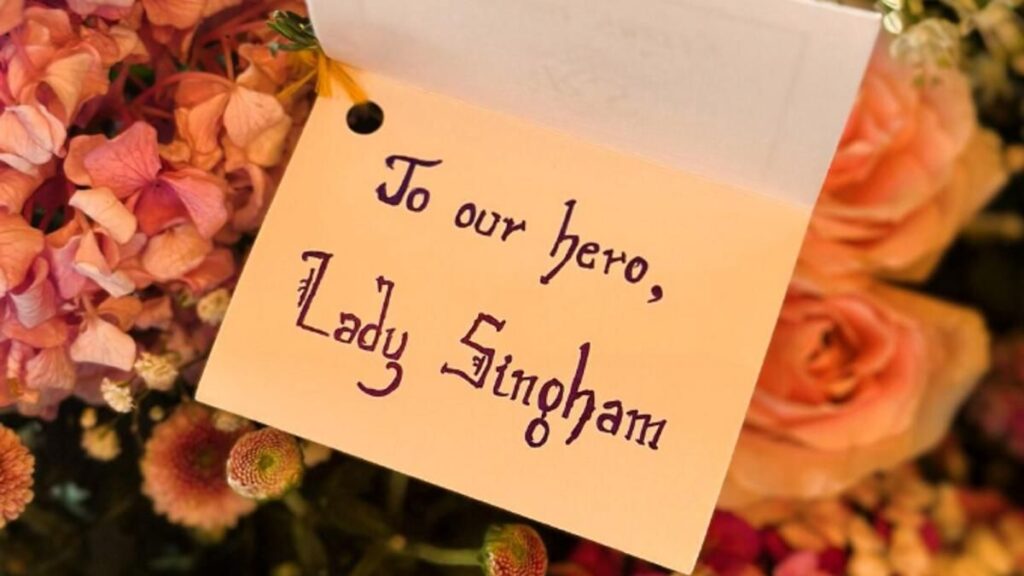 To our hero,
Lady Singham